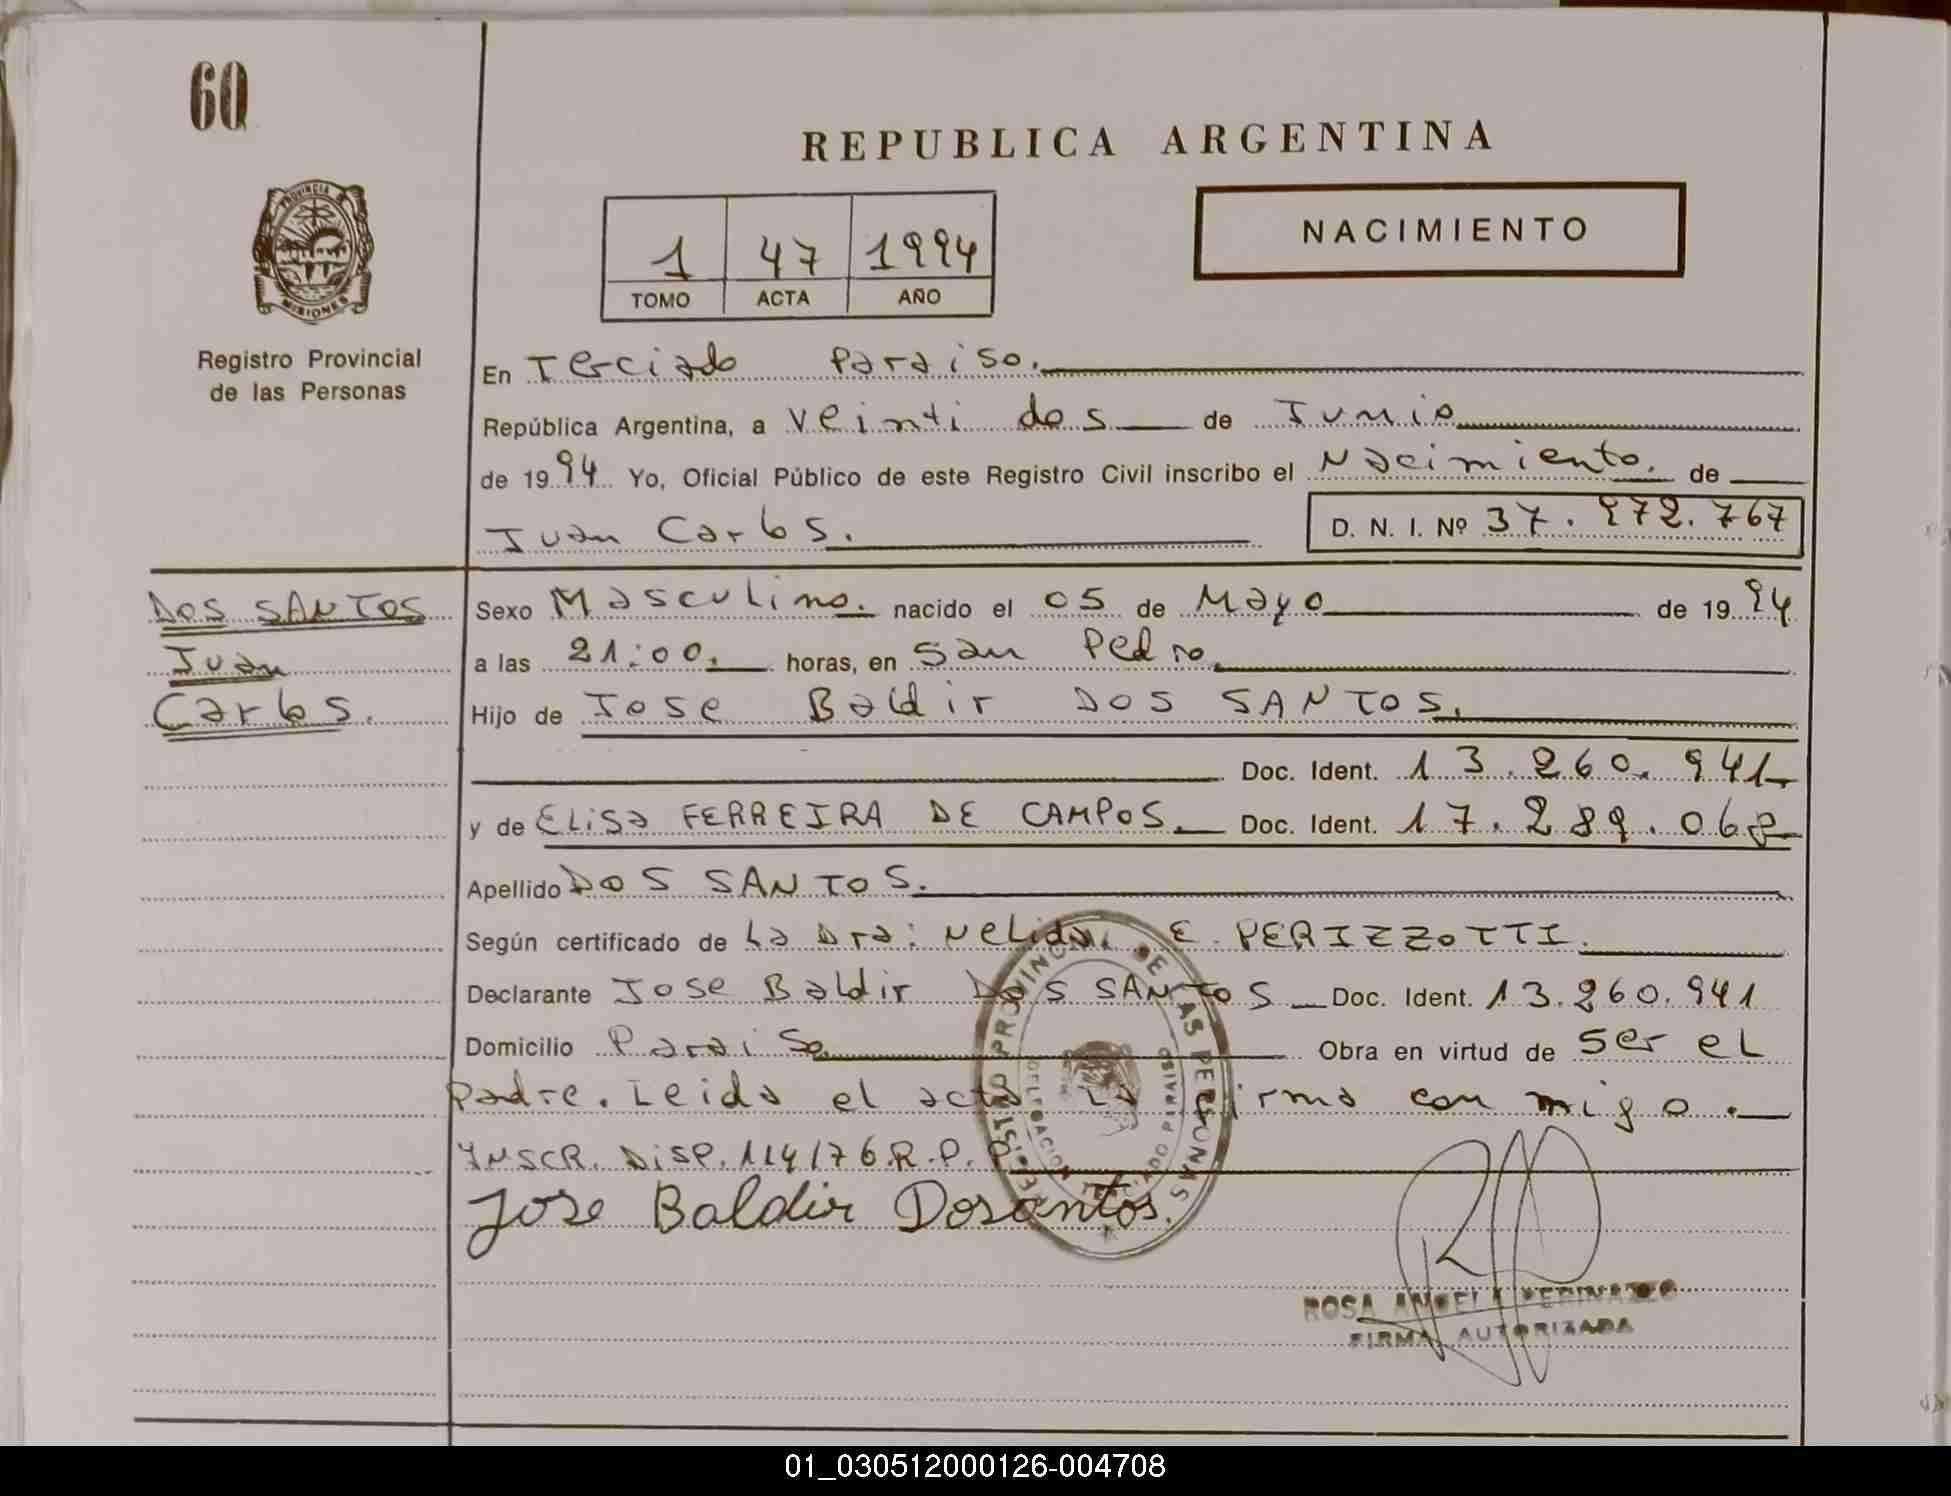 60
REPUBLICA ARGENTINA
PROVINCIA
MISIONES
NACIMIENTO
1 47 1994
TOMO ACTA AÑO
Registro Provincial
de las Personas
En Terciado Paraiso.
República Argentina, a Veinti dos de Junio
de 1994 Yo, Oficial Público de este Registro Civil inscribo el Nacimiento. de
Juan Carlos. D. N. I. Nº 37.972.767
DOS SANTOS
Juan
Carlos.
Sexo Masculino. nacido el 05 de Mayo de 1994
a las 21:00. horas, en San Pedro.
Hijo de Jose Baldir DOS SANTOS.
Doc. Ident. 13.260.941
y de ELiSa FERREIRA DE CAMPOS. Doc. Ident. 17.289.068
Apellido DOS SANTOS.
Según certificado de La Dra: Nelida. E. PERIZZOTTI.
Declarante Jose Baldir DOS SANTOS Doc. Ident. 13.260.941
Domicilio Paraiso. Obra en virtud de ser el
padre. Leida el acta La firma con migo.
INSCR. DISP. 114/76.R.P.P.
Jose Baldir Dosantos.
REGISTRO PROVINCIAL DE LAS PERSONAS
DELEGACION TERCIADO PARAISO
ROSA ANGELA
FIRMA AUTORIZADA
01_030512000126-004708